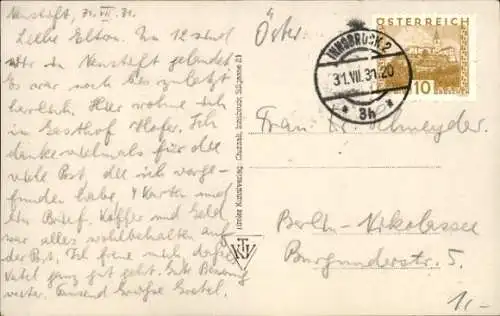 Neustift, 31. VII. 31.
Liebe Eltern. Um 12 sind
wir in Neustift gelandet
Es war noch bis zuletzt
herrlich. Hier wohne ich
im Gasthof Hofer. Ich
danke vielmals für die
viele Post, die ich vorge-
funden habe, 4 Karten und
ein Brief. Koffer und Geld
war alles wohlbehalten auf
der Post. Ich freue mich, dass es
Vatel ganz gut geht. Gute Besserung
weiter. Tausend Grüsse Gretel.
Tiroler Kunstverlag Chizzali, Innsbruck, Sillgasse 21
TKV
Öster.
INNSBRUCK 2
31.VII.31.20
* 3h *
ÖSTERREICH
10
Frau Dr. Schneyder.
Berlin-Nikolassee
Burgunderstr. 5.
1.-